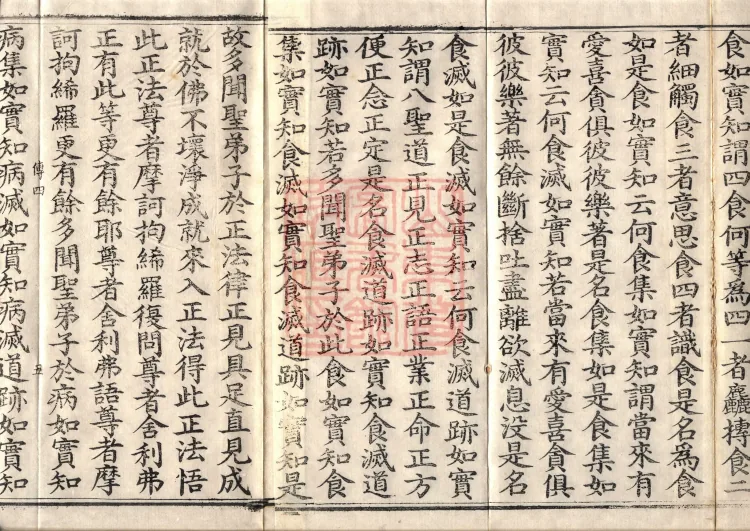 食如實知謂四食何等為四一者麤摶食二
者細觸食三者意思食四者識食是名為食
如是食如實知云何食集如實知謂當來有
愛喜貪俱彼彼樂著是名食集如是食集如
實知云何食滅如實知若當來有愛喜貪俱
彼彼樂著無餘斷捨吐盡離欲滅息没是名
食滅如是食滅如實知云何食滅道跡如實
知謂八聖道正見正志正語正業正命正方
便正念正定是名食滅道跡如實知食滅道
跡如實知若多聞聖弟子於此食如實知食
集如實知食滅如實知食滅道跡如實知是
故多聞聖弟子於正法律正見具足直見成
就於佛不壞淨成就來入正法得此正法悟
此正法尊者摩訶拘絺羅復問尊者舍利弗
正有此等更有餘耶尊者舍利弗語尊者摩
訶拘絺羅更有餘多聞聖弟子於病如實知
傳四 五
病集如實知病滅如實知病滅道跡如實知